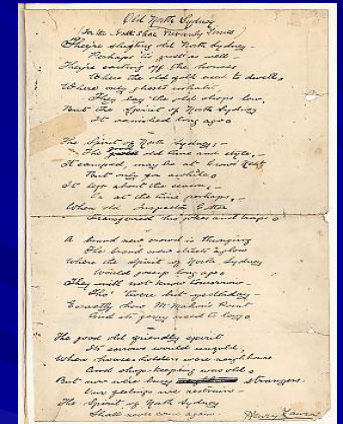 Old North Sydney
(For the North Shore
They're shifting old North Sydney –
Perhaps 'tis just as well –
They're carting off the houses
Where the old folk used to dwell.
Where only ghosts inhabit
They lay the old shops low.
But the Spirit of North Sydney
It vanished long ago.
The Spirit of North Sydney:
The good old time and style,
It camped, may be at Crows Nest
But only for awhile.
It left about the season,
Or at the time perhaps,
When old Inspector
Transferred his jokes and traps.
A brand new crowd is thronging
The brand new streets aglow
Where the Spirit of North Sydney
Would gossip long ago.
They will not know tomorrow –
Tho' 'twere but yesterday –
Exactly how McMahon's
And its ferry used to
The good old friendly spirit
Its sorrows would unfold,
When householders were neighbours
And shop-keeping was old.
But now we're busy strangers.
Our feelings we restrain –
The Spirit of North Sydney
Shall never come again.
Henry Lawson